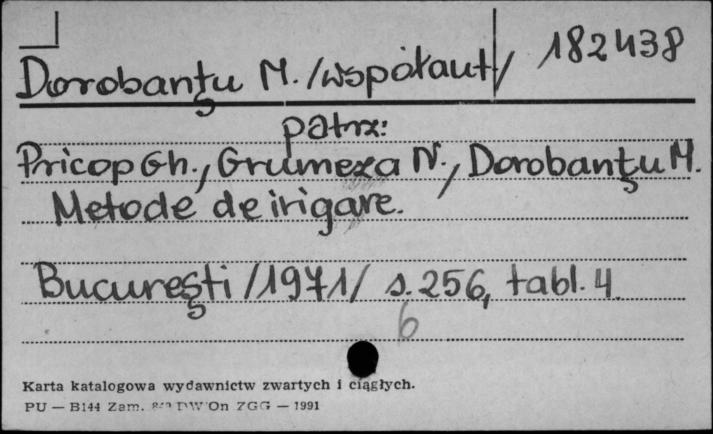 Dorobanţu M. /współaut/ 182438
patrz:
Pricop Gh., Grumeza N., Dorobanţu M.
Metode de irigare.
Bucureşti /1971/ s. 256, tabl. 4.
6
Karta katalogowa wydawnictw zwartych i ciągłych.
PU — B144 Zam. DW On ZGG — 1991